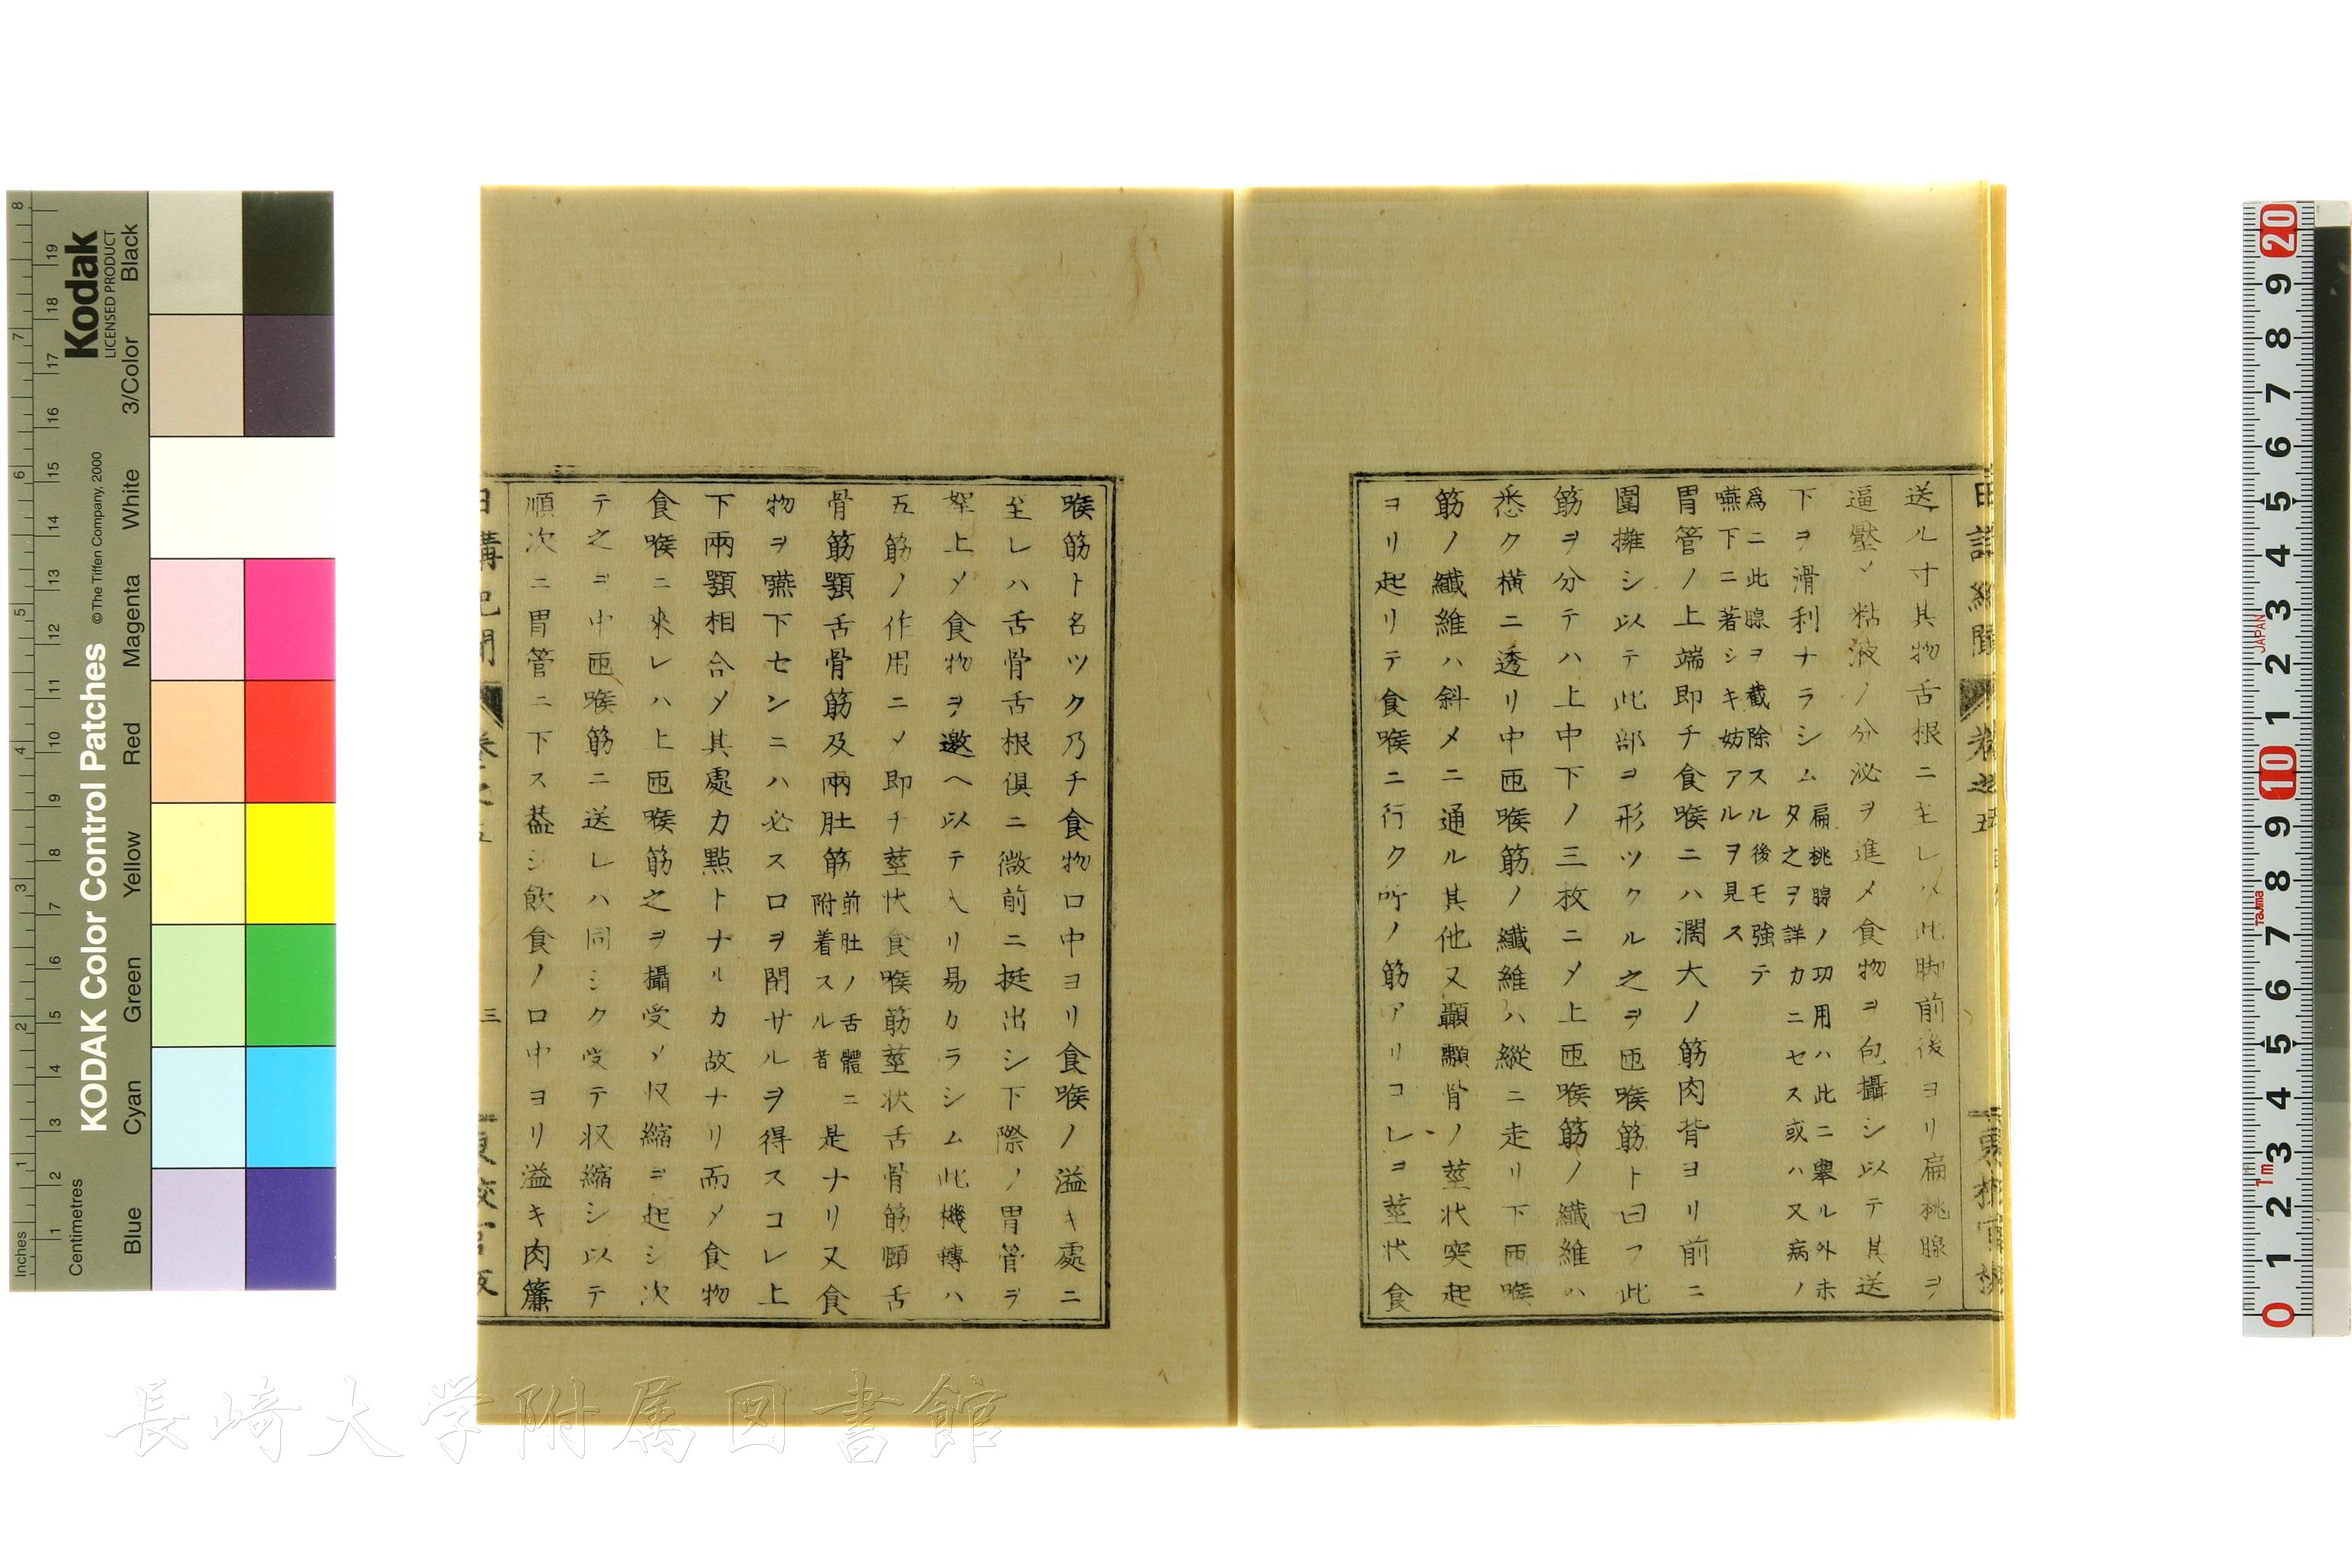 送ル寸其物舌根ニ至レハ此脚前後ヨリ扁桃腺ヲ
逼壓乄粘液ノ分泌ヲ進メ食物ヲ包攝シ以テ其送
下ヲ滑利ナラシム
扁桃腺ノ功用ハ此ニ擧ル外未
タ之ヲ詳カニセス或ハ又病ノ
爲ニ此腺ヲ截除スル後モ強テ
嚥下ニ著シキ妨アルヲ見ス
胃管ノ上端即チ食喉ニハ濶大ノ筋肉背ヨリ前ニ
圍擁シ以テ此部ヲ形ツクル之ヲ匝喉筋ト曰フ此
筋ヲ分テハ上中下ノ三枚ニ乄上匝喉筋ノ纖維ハ
悉ク横ニ透リ中匝喉筋ノ纖維ハ縱ニ走リ下匝喉
筋ノ纖維ハ斜メニ通ル其他又顳顬骨ノ莖状突起
ヨリ起リテ食喉ニ行ク所ノ筋アリコレヲ莖状食
喉筋ト名ツク乃チ食物口中ヨリ食喉ノ溢キ處ニ
至レハ舌骨舌根倶ニ微前ニ挺出シ下際ノ胃管ヲ
挈上乄食物ヲ邀ヘ以テ入リ易カラシム此機轉ハ
五筋ノ作用ニ乄即チ莖状食喉筋莖状舌骨筋頤舌
骨筋顎舌骨筋及兩肚筋
前肚ノ舌體ニ
附着スル者
是ナリ又食
物ヲ嚥下センニハ必ス口ヲ閉サルヲ得スコレ上
下兩顎相合乄其處カ點トナルカ故ナリ而乄食物
食喉ニ來レハ上匝喉筋之ヲ攝受乄収縮ヲ起シ次
テ之ヲ中匝喉筋ニ送レハ同シク受テ収縮シ以テ
順次ニ胃管ニ下ス葢シ飲食ノ口中ヨリ溢キ肉簾
日講記聞
卷之五
三
Kodak
LICENSED PRODUCT
KODAK Color Control Patches
© The Tiffen Company, 2000
Inches
Centimetres
Blue
Cyan
Green
Yellow
Red
Magenta
White
3/Color
Black
JAPAN
Tajima
1m
長崎大学附属図書館